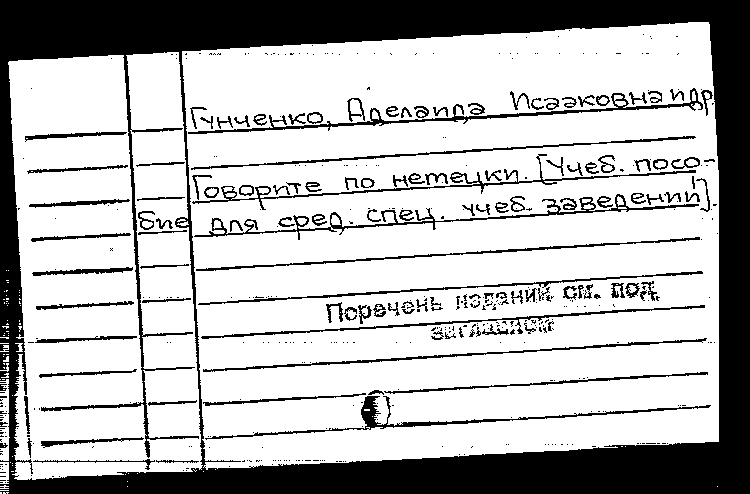 Гунченко, Аделаида Исааковна и др.
Говорите по немецки. [Учеб. посо-
бие для сред. спец. учеб. заведений].
Перечень изданий см. под
заглавием